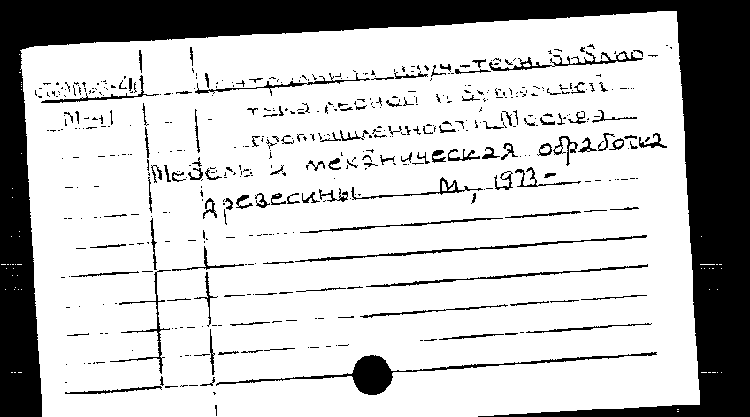 М-41
Центральная науч.-техн. библио-
тека лесной и бумажной
промышленности. Москва.
Мебель и механическая обработка
древесины. М., 1973-